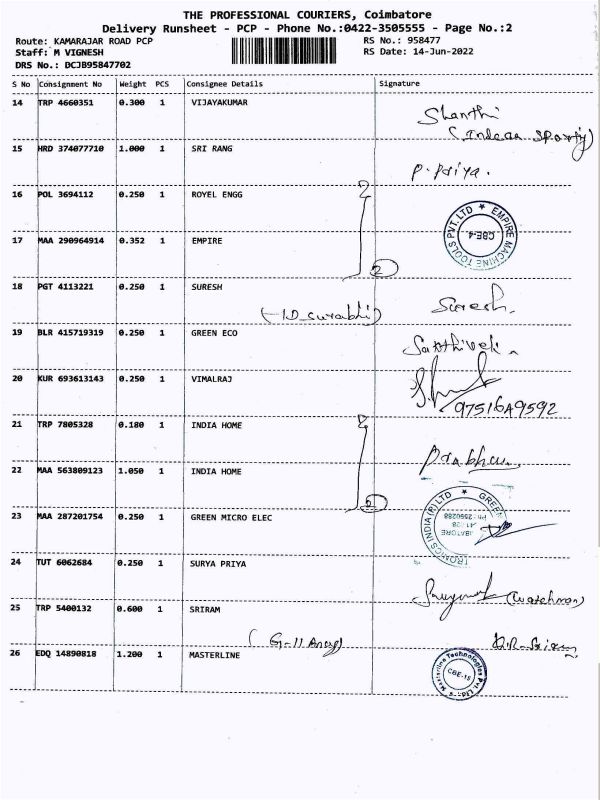 THE PROFESSIONAL COURIERS, Coimbatore
Delivery Runsheet - PCP - Phone No.:0422-3505555 - Page No.:2
Route: KAMARAJAR ROAD PCP RS No.: 958477
Staff: M VIGNESH RS Date: 14-Jun-2022
DRS No.: DCJB95847702
S No Consignment No Weight PCS Consignee Details Signature
14 TRP 4660351 0.300 1 VIJAYAKUMAR
Shanthi
15 HRD 374077710 1.000 1 SRI RANG
P. Priya.
16 POL 3694112 0.250 1 ROYEL ENGG
EMPIRE MACHINE TOOLS PVT. LTD ★
CBE-4
17 MAA 290964914 0.352 1 EMPIRE
2
18 PGT 4113221 0.250 1 SURESH
Suresh.
19 BLR 415719319 0.250 1 GREEN ECO
20 KUR 693613143 0.250 1 VIMALRAJ
21 TRP 7805328 0.180 1 INDIA HOME
22 MAA 563809123 1.050 1 INDIA HOME
23 MAA 287201754 0.250 1 GREEN MICRO ELEC
24 TUT 6062684 0.250 1 SURYA PRIYA
(watchman)
25 TRP 5400132 0.600 1 SRIRAM
26 EDQ 14890818 1.200 1 MASTERLINE
Masterline Technologies Pvt. Ltd.
CBE-15